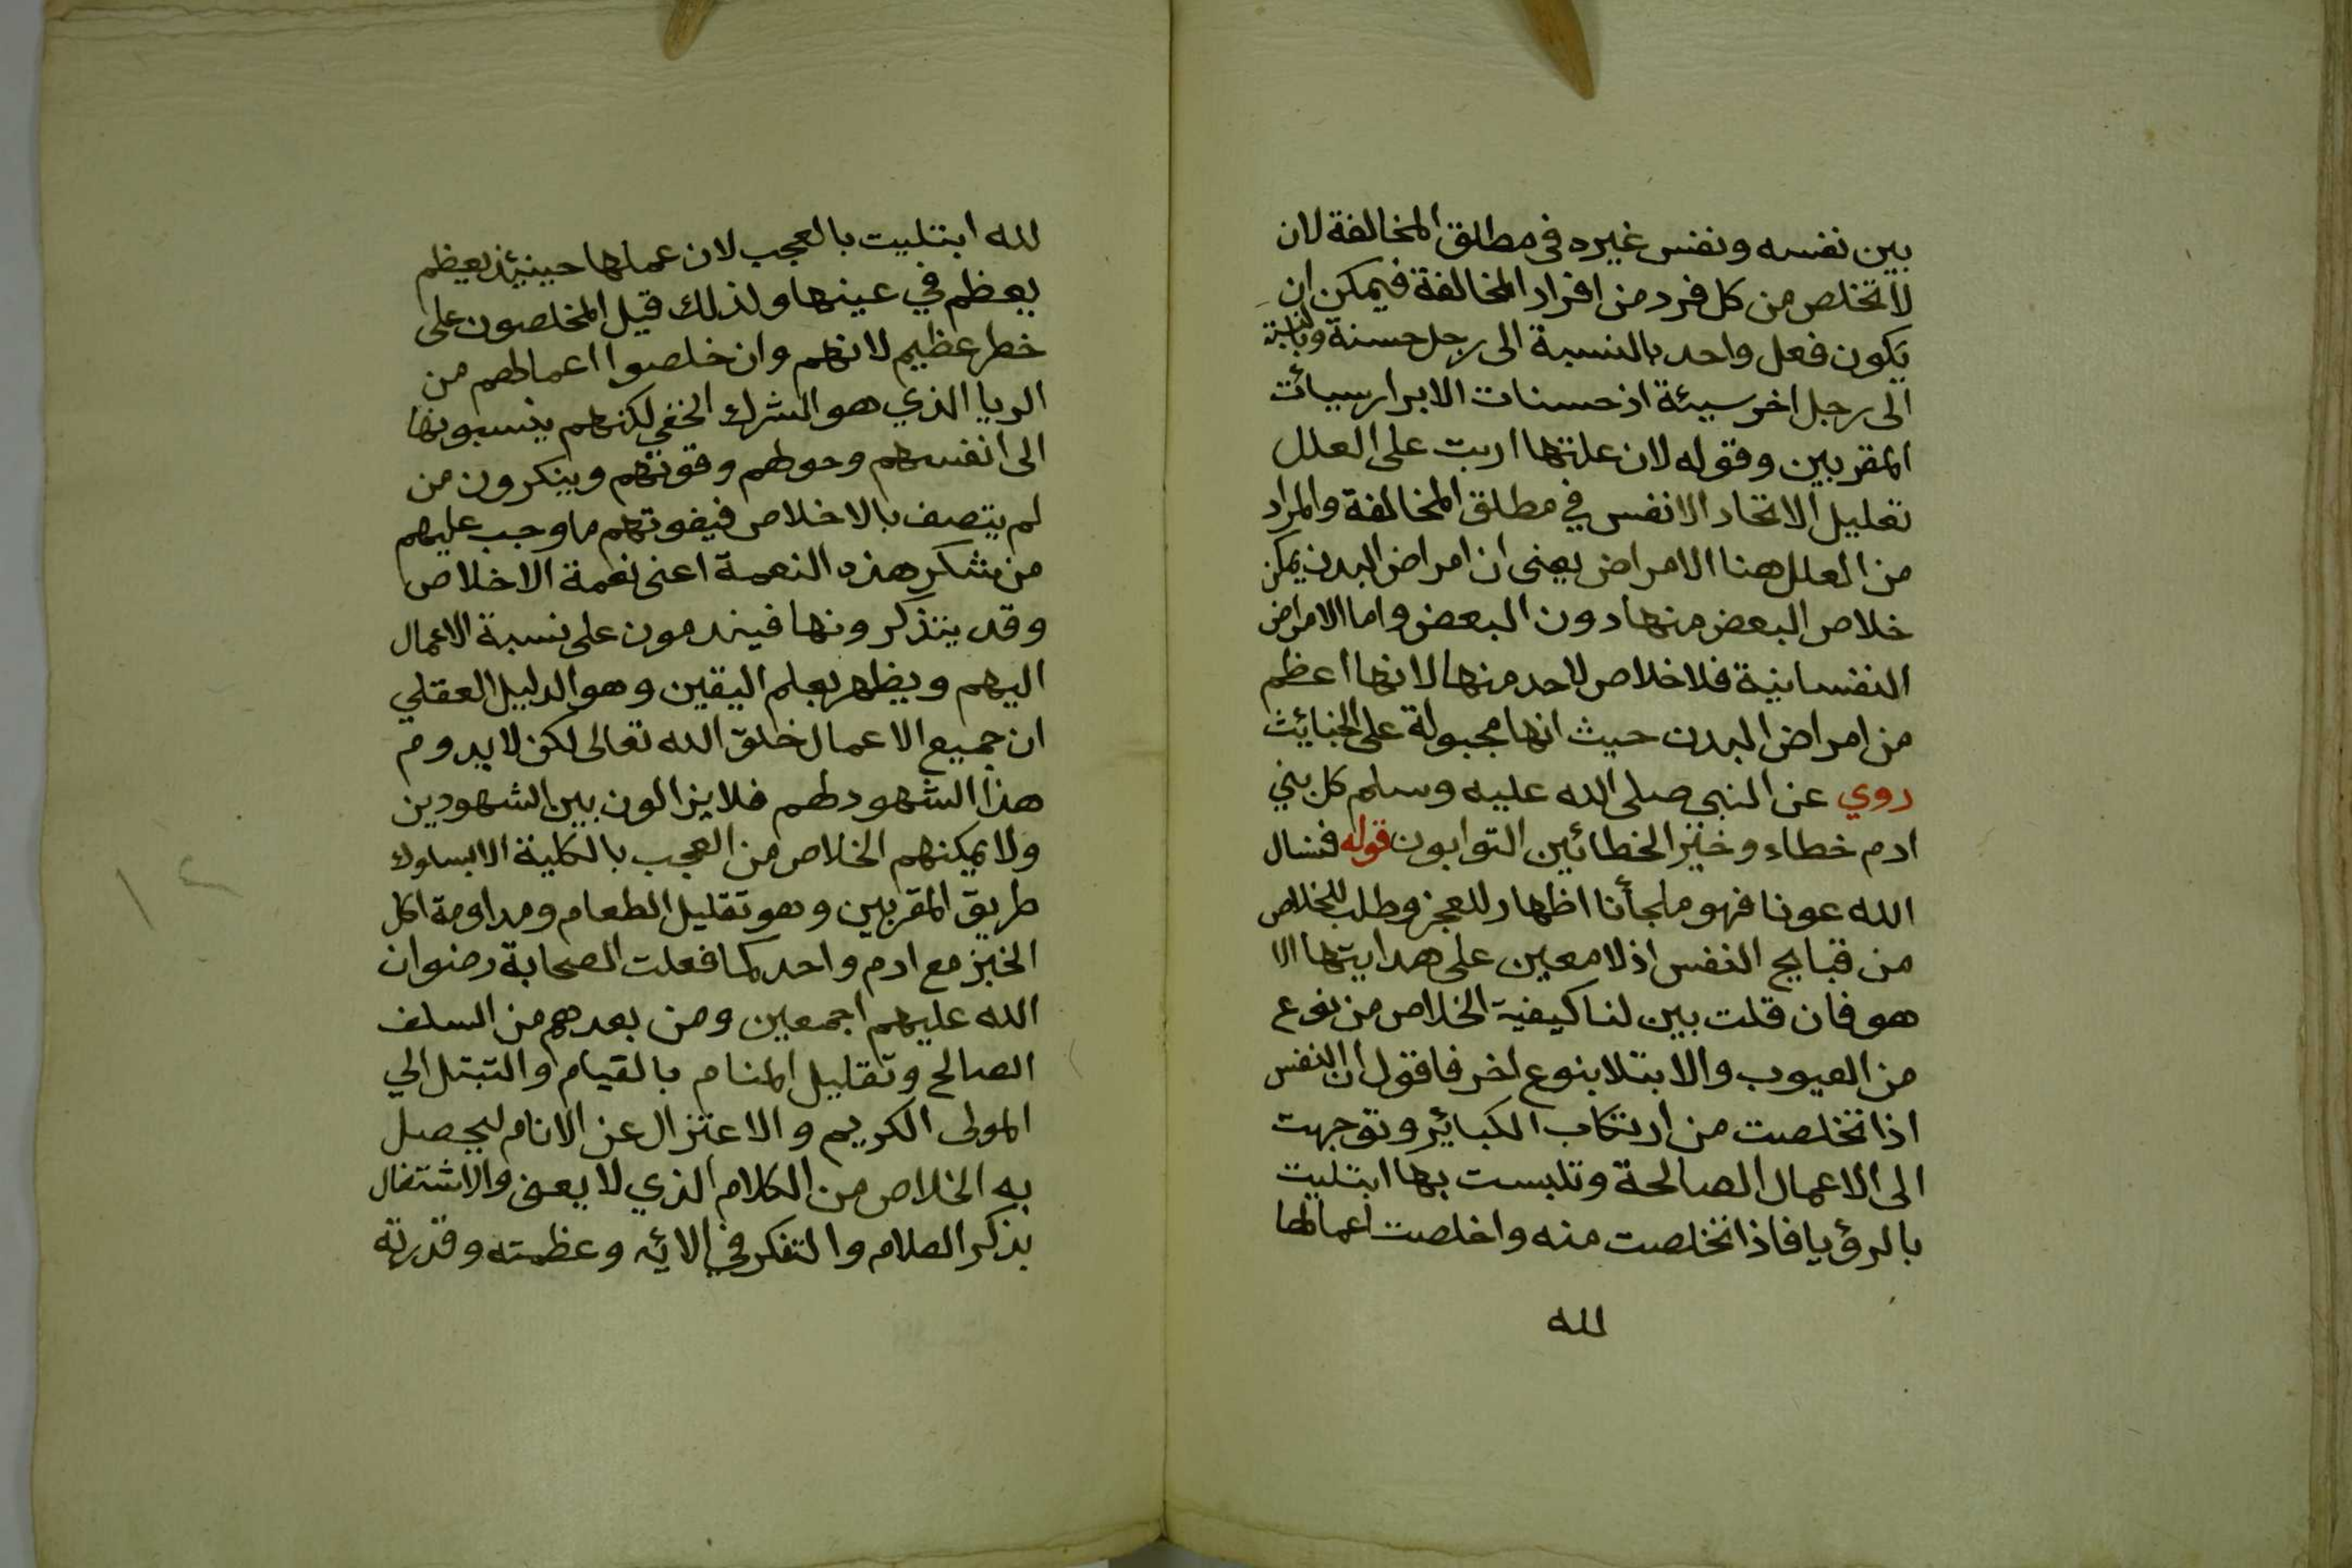 بين نفسه ونفس غيره في مطلق المخالفة لان
لا تخلص من كل فرد من افراد المخالفة فيمكن ان
يكون فعل واحد بالنسبة الى رجل حسنة وبالنسبة
الى رجل اخر سيئة اذ حسنات الابرار سيأت
المقربين وقوله لان علتها اربت على العلل
تعليل الاتحاد الانفس في مطلق المخالفة والمراد
من العلل هنا الامراض يعني ان امراض البدن يمكن
خلاص البعض منها دون البعض واما الامراض
النفسانية فلا خلاص لاحد منها لانها اعظم
من امراض البدن حيث انها مجبولة على الخبائث
روي عن النبي صلى الله عليه وسلم كل بني
ادم خطاء وخير الخطائين التوابون قوله فنسال
الله عونا فهو ملجأنا اظهار للعجز وطلب للخلاص
من قبايح النفس اذ لا معين على هدايتها الا
هو فان قلت بين لنا كيفية الخلاص من نوع
من العيوب والابتلا بنوع اخر فاقول ان النفس
اذا تخلصت من ارتكاب الكبائر وتوجهت
الى الاعمال الصالحة وتلبست بها ابتليت
بالرؤيا فاذا تخلصت منه واخلصت اعمالها
لله
لله ابتليت بالعجب لان عملها حينيئذ يعظم
يعظم في عينها ولذلك قيل المخلصون على
خطر عظيم لانهم وان خلصوا اعمالهم من
الريا الذي هو الشرك الخفي لكنهم ينسبونها
الى انفسهم وحولهم وقوتهم وينكرون من
لم يتصف بالاخلاص فيفوتهم ما وجب عليهم
من شكر هذه النعمة اعني نعمة الاخلاص
وقد يتذكرونها فيندمون على نسبة الاعمال
اليهم ويظهر بعلم اليقين وهو الدليل العقلي
ان جميع الاعمال خلق الله تعالى لكن لا يدوم
هذا الشهود لهم فلا يزالون بين الشهودين
ولا يمكنهم الخلاص من العجب بالكلية الا بسلوك
طريق المقربين وهو تقليل الطعام ومداومة اكل
الخبز مع ادم واحد كما فعلت الصحابة رضوان
الله عليهم اجمعين ومن بعدهم من السلف
الصالح وتقليل المنام بالقيام والتبتل الي
المولى الكريم والاعتزال عن الانام ليحصل
به الخلاص من الكلام الذي لا يعني والاشتغال
بذكر العلام والتفكر في الائه وعظمته وقدرته